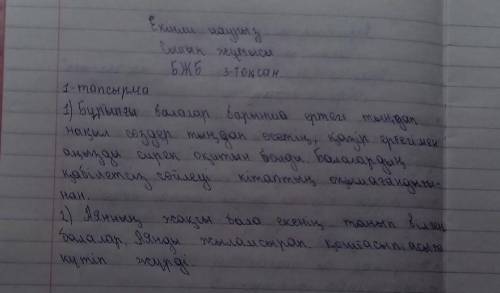 Екінші наурыз
Сынып жұмысы
БЖБ 3-тоқсан
1-тапсырма
1) Бұрынғы балалар барынша ертегі тыңдап
нақыл сөздер тыңдап өсетін, қазір ертегімен
аңызды сирек оқитын болды. Балалардың
қабілетсіз сөйлеуі кітаптың оқымағандығы-
нан.
2) Аянның жақсы бала екенін танып білген
балалар, Аянды жыламсырап қоштасып асыға
күтіп жүрді.